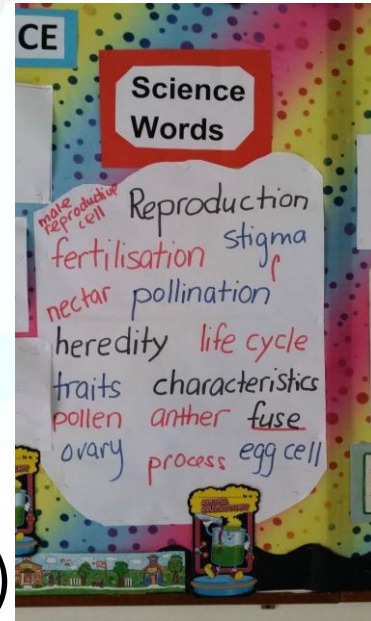 CE
Science
Words
male
reproductive
cell
Reproduction
fertilisation
stigma
nectar
pollination
heredity
life cycle
traits
characteristics
pollen
anther
fuse
ovary
process
egg cell
)